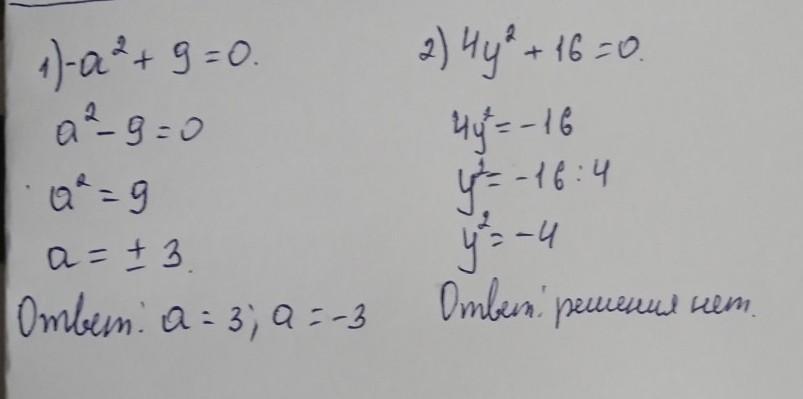 1) -a² + 9 = 0.
a² - 9 = 0
a² = 9
a = ± 3.
Ответ: a = 3; a = -3
2) 4y² + 16 = 0.
4y² = -16
y² = -16 : 4
y² = -4
Ответ: решения нет.